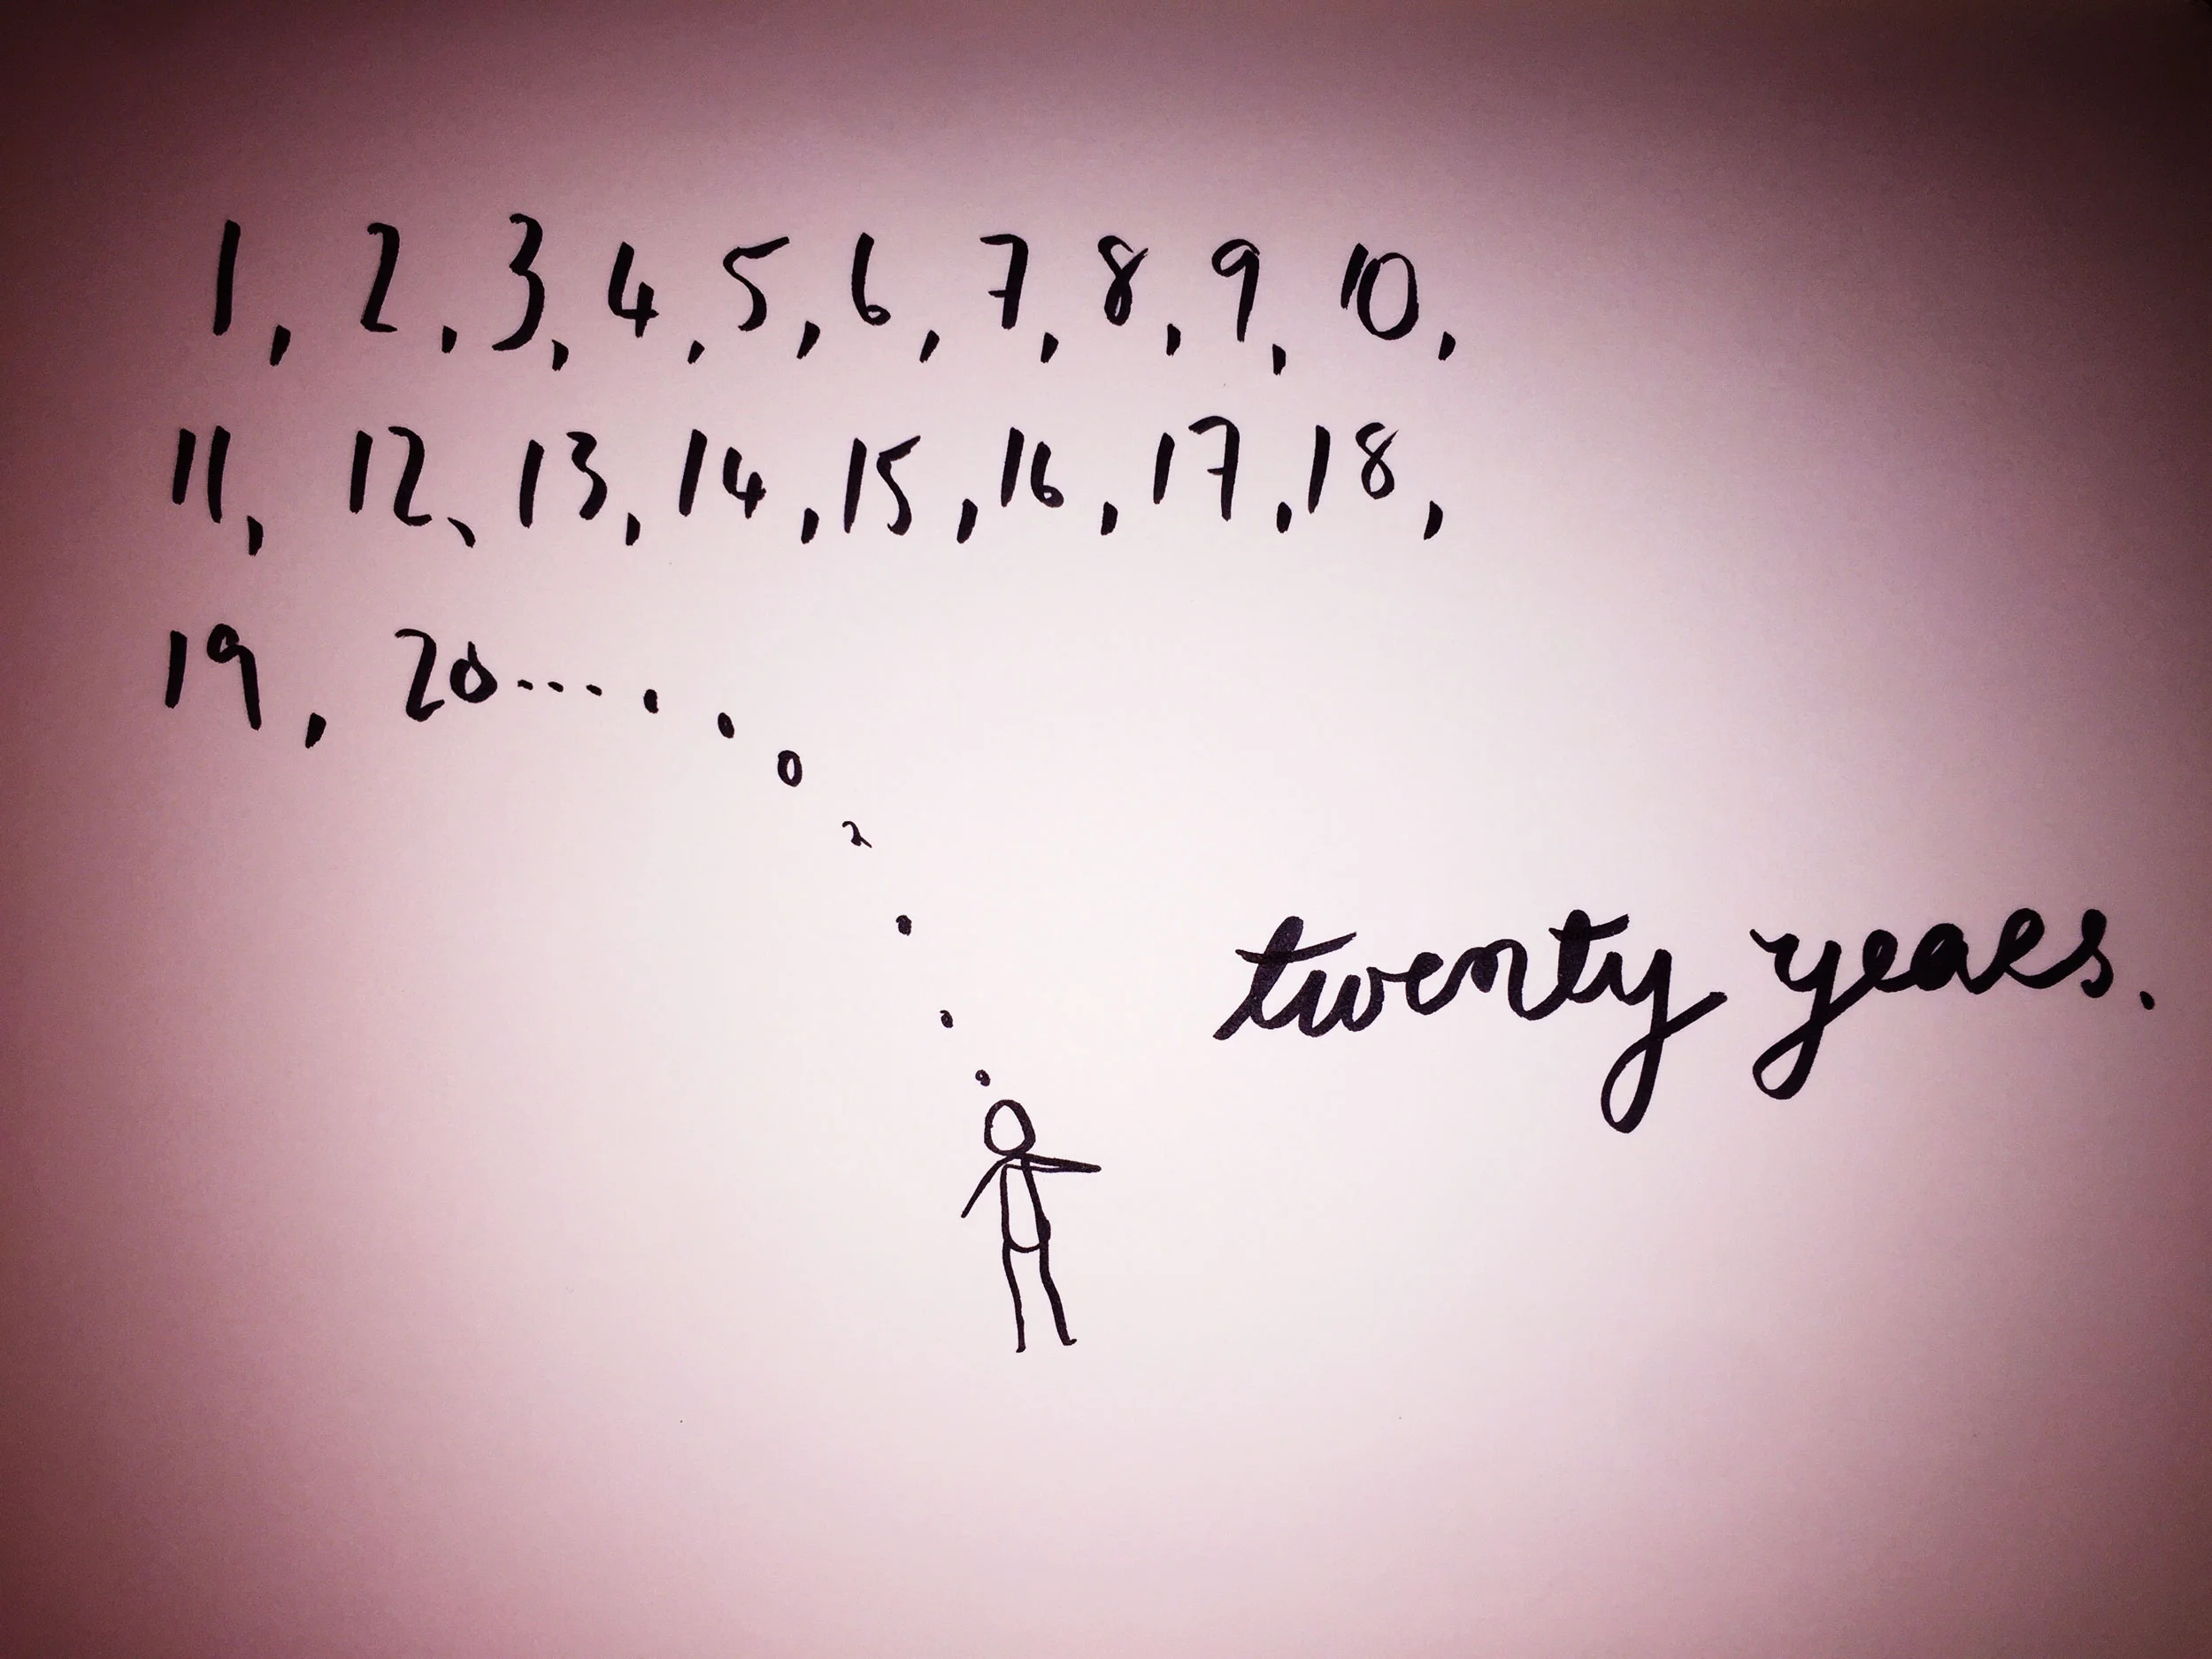 1, 2, 3, 4, 5, 6, 7, 8, 9, 10,
11, 12, 13, 14, 15, 16, 17, 18,
19, 20.....
twenty years.